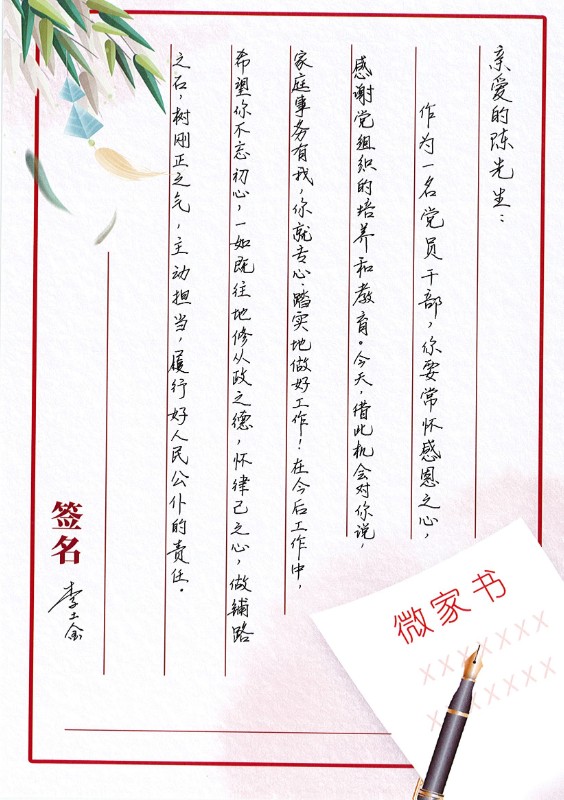 亲爱的陈先生：
作为一名党员干部，你要常怀感恩之心，
感谢党组织的培养和教育。今天，借此机会对你说，
家庭事务有我，你就专心、踏实地做好工作！在今后工作中，
希望你不忘初心，一如既往地修从政之德，怀律己之心，做铺路
之石，树刚正之气，主动担当，履行好人民公仆的责任。
签名
李工金
微家书
XXXXXXX
XXXXXXX